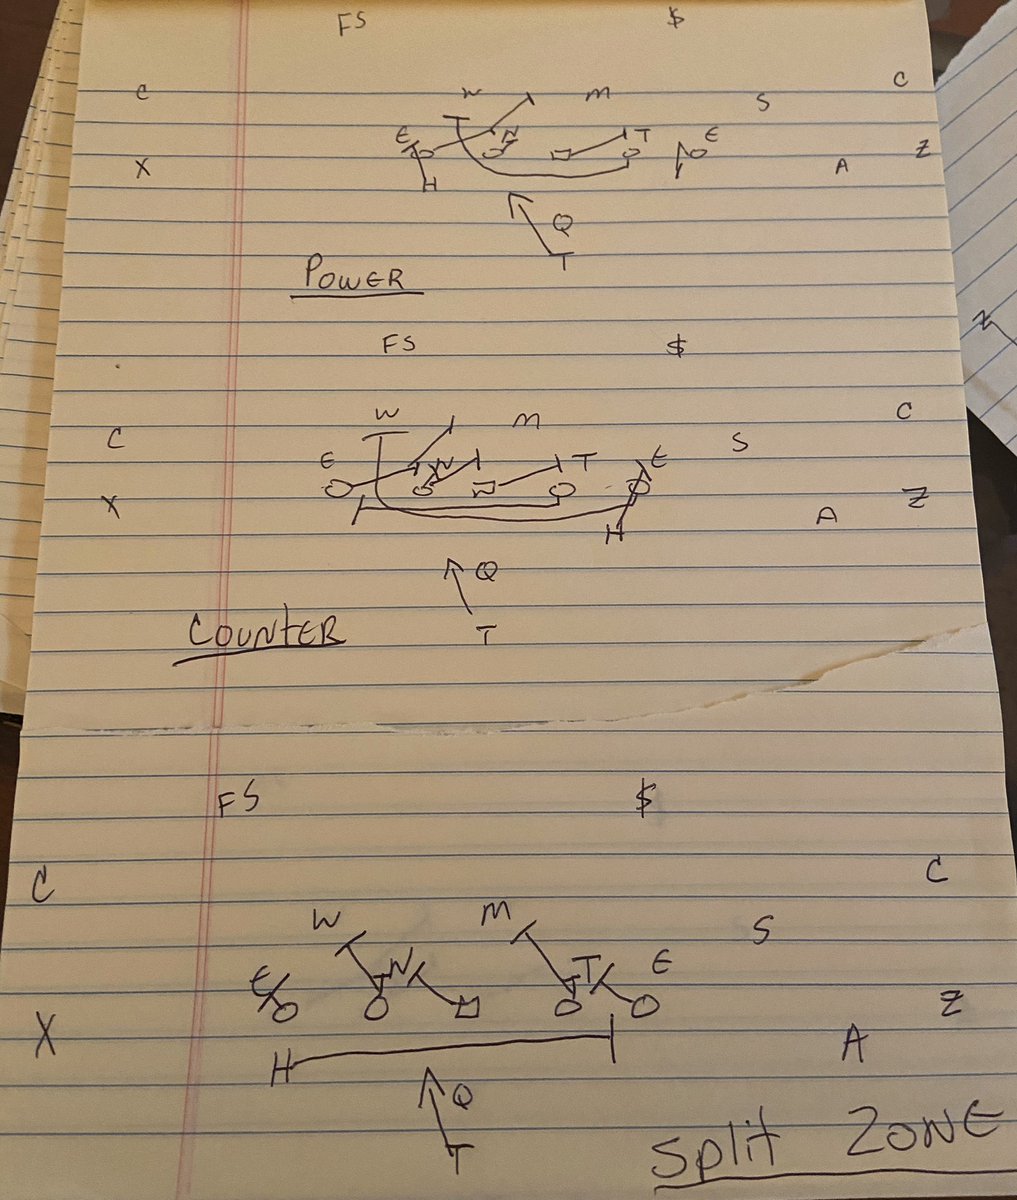 FS $
C W M S C
E N T E
X H A Z
Q
T
POWER
FS $
W M C
C E N T E S
X H A Z
Q
T
COUNTER
FS $
C W M S C
E N T E
X H A Z
Q
T
Split ZONE
Z